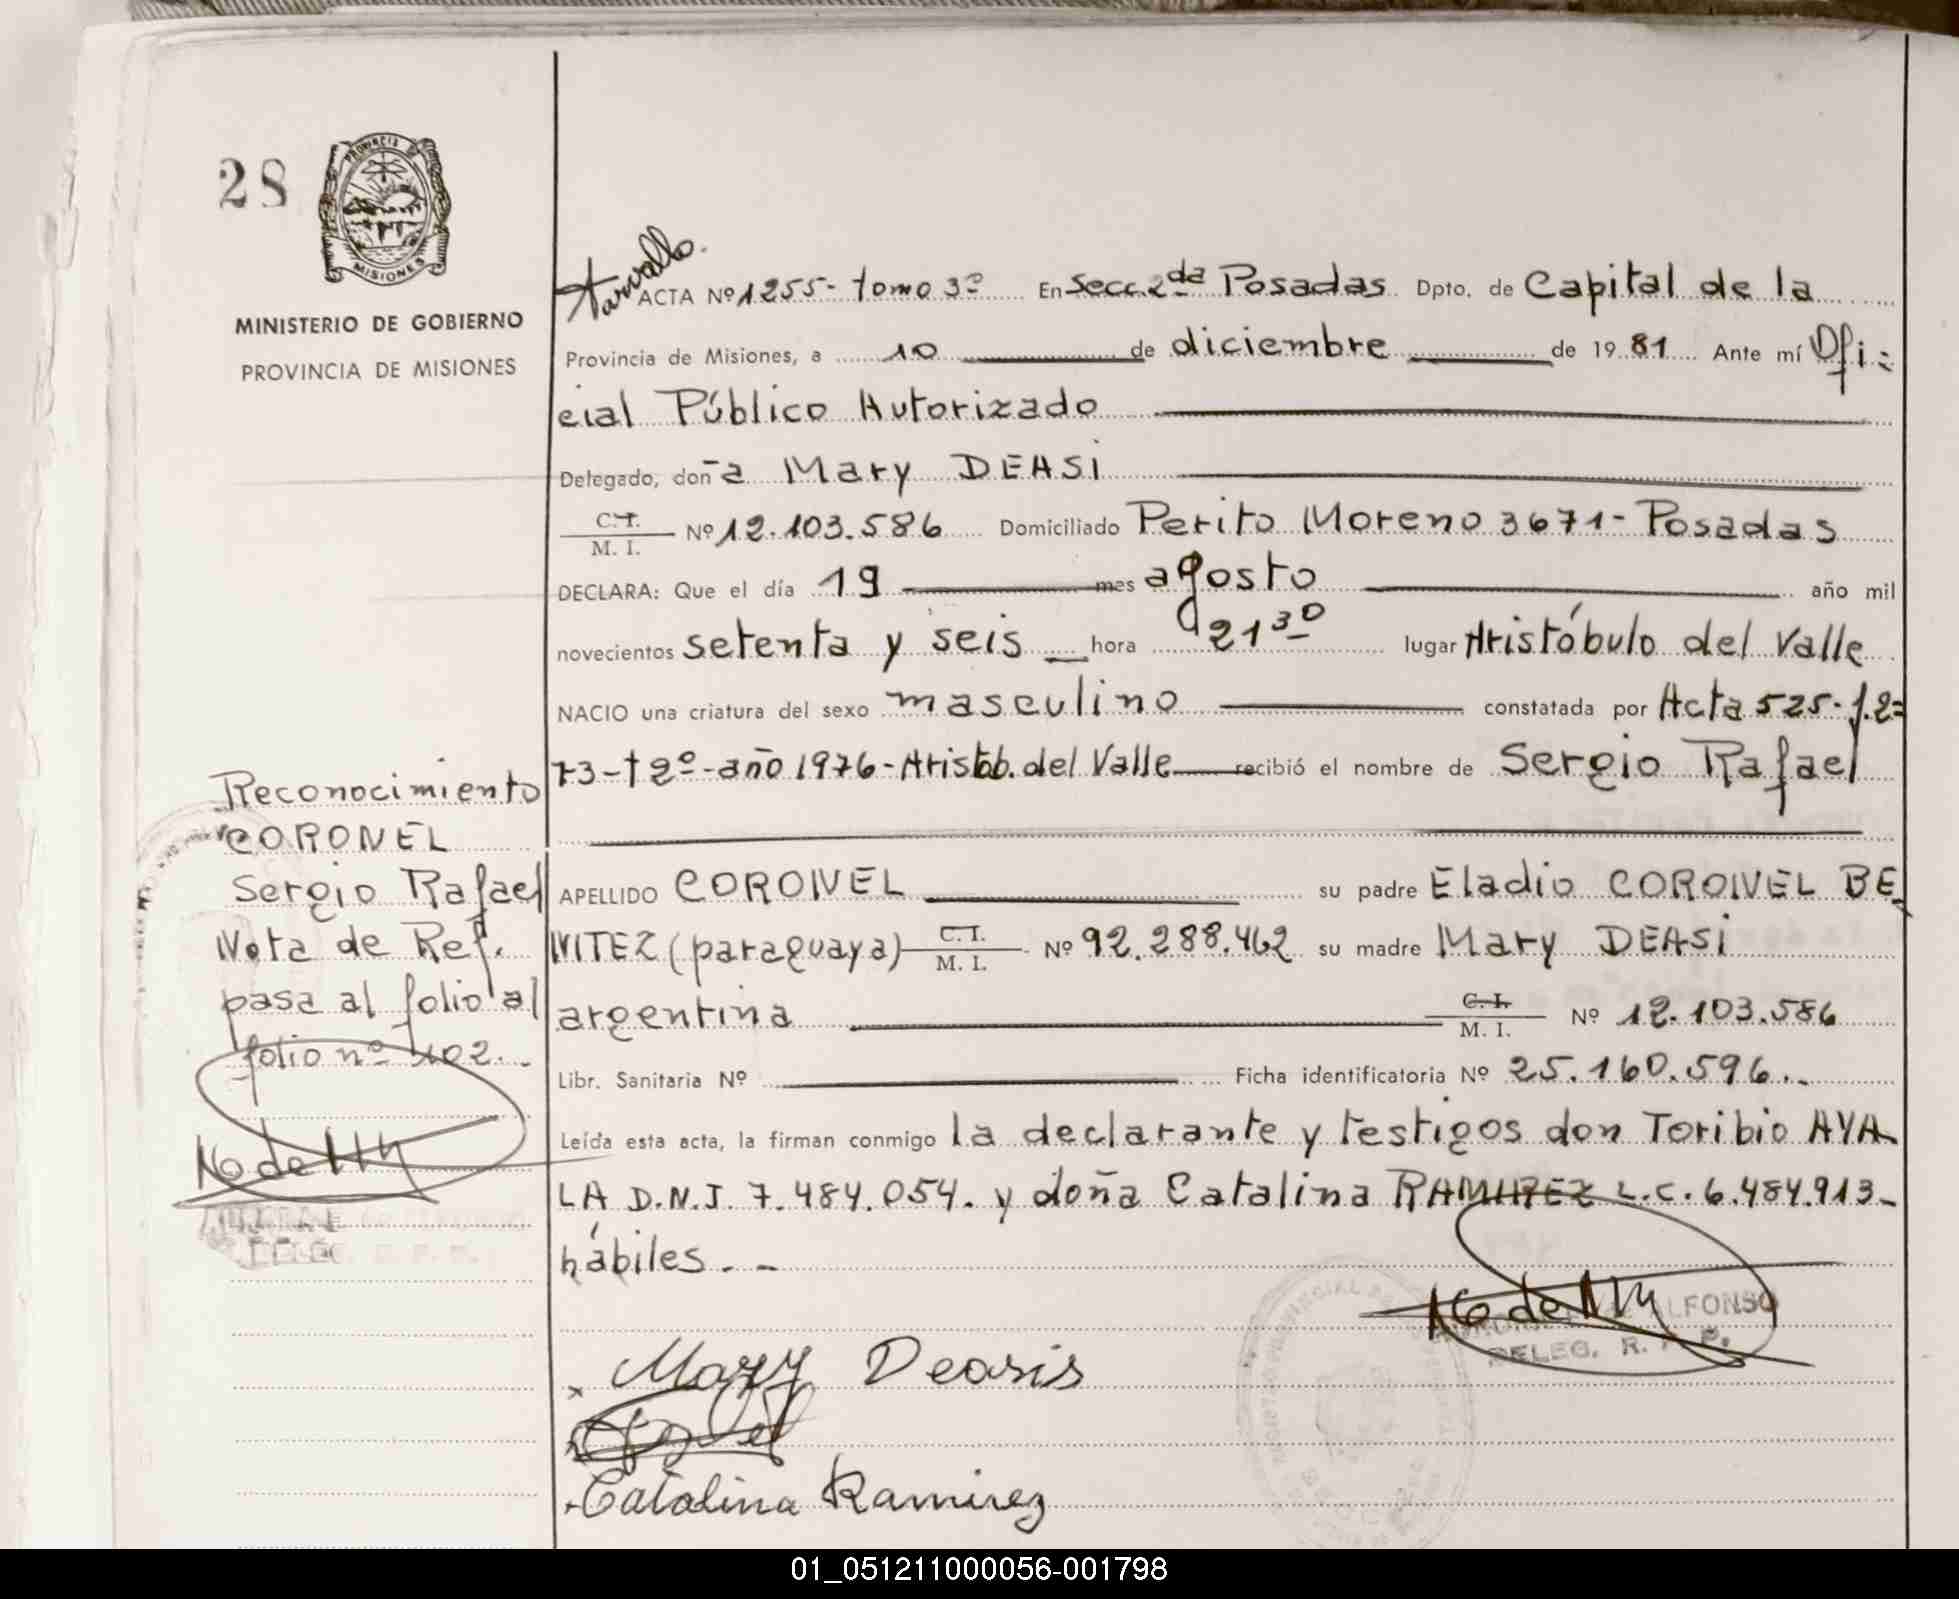 28
PROVINCIA DE
MISIONES
MINISTERIO DE GOBIERNO
PROVINCIA DE MISIONES
ACTA Nº 1255- tomo 3º En Secc. 2da Posadas Dpto. de Capital de la
Provincia de Misiones, a 10 de diciembre de 1981 Ante mí Ofi=
cial Público Autorizado
Delegado, doña Mary DEASI
C.I.
M. I. Nº 12.103.586 Domiciliado Perito Moreno 3671- Posadas
DECLARA: Que el día 19 mes agosto año mil
novecientos setenta y seis hora 21 30 lugar Aristóbulo del Valle
NACIO una criatura del sexo masculino constatada por Acta 525- f. 2=
73- t 2º- año 1976- Aristób. del Valle recibió el nombre de Sergio Rafael
APELLIDO CORONEL su padre Eladio CORONEL BE-
NITEZ (paraguaya) C.I. M. I. Nº 92.288.462 su madre Mary DEASI
argentina C.I. M. I. Nº 12.103.586
Libr. Sanitaria Nº Ficha identificatoria Nº 25.160.596.-
Leída esta acta, la firman conmigo la declarante y testigos don Toribio AYA-
LA D.N.I. 7.484.054. y doña Catalina RAMIREZ L.C. 6.484.913-
hábiles. -
Reconocimiento
CORONEL
Sergio Rafael
Nota de Ref.
pasa al folio al
folio nº 102.-
ALFONSO
DELEG. R. P.
Mary Deasis
Catalina Ramirez
01_051211000056-001798